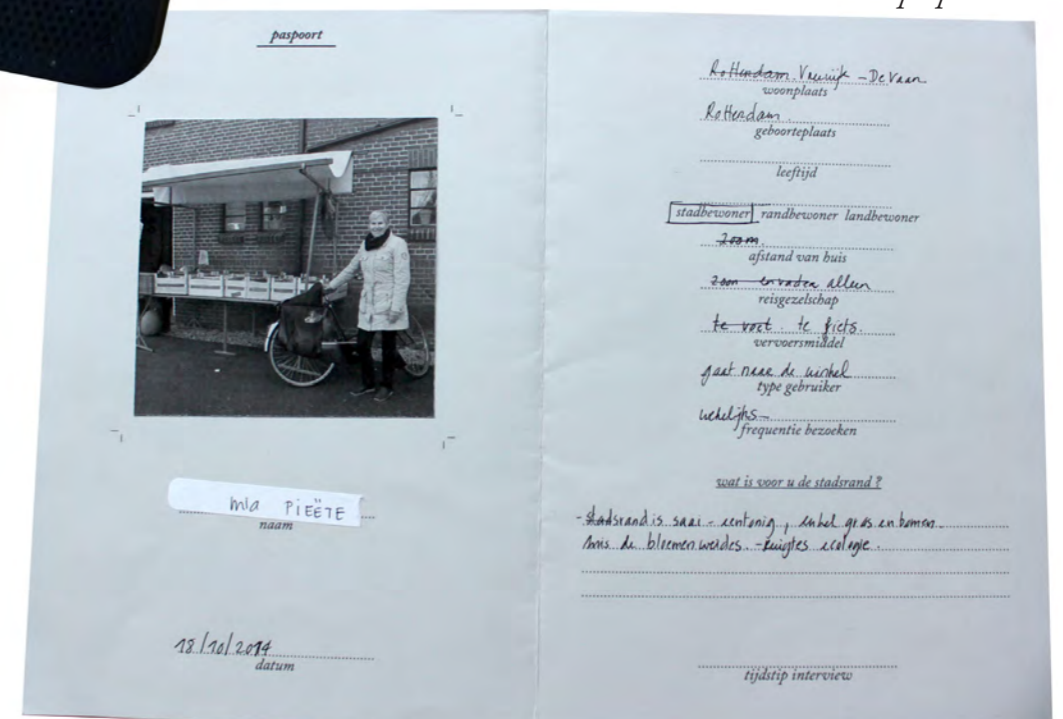 paspoort
mia PiEËTE
naam
18/10/2014
datum
Rotterdam. Vreewijk - De Vaan.
woonplaats
Rotterdam.
geboorteplaats
leeftijd
stadbewoner randbewoner landbewoner
200m.
afstand van huis
zoon en vader alleen
reisgezelschap
te voet. te fiets.
vervoersmiddel
gaat naar de winkel
type gebruiker
wekelijks -
frequentie bezoeken
wat is voor u de stadsrand ?
- stadsrand is saai - eentonig, enkel gras en bomen.
mis de bloemenweides. - ruigtes ecologie.
tijdstip interview